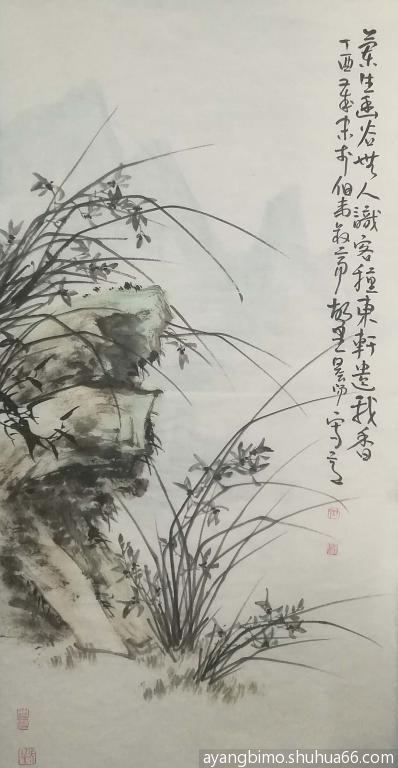 蘭生幽谷無人識客種東軒遺我香
丁酉歲末於伯 故里 寫意
ayangbimo.shuhua66.com